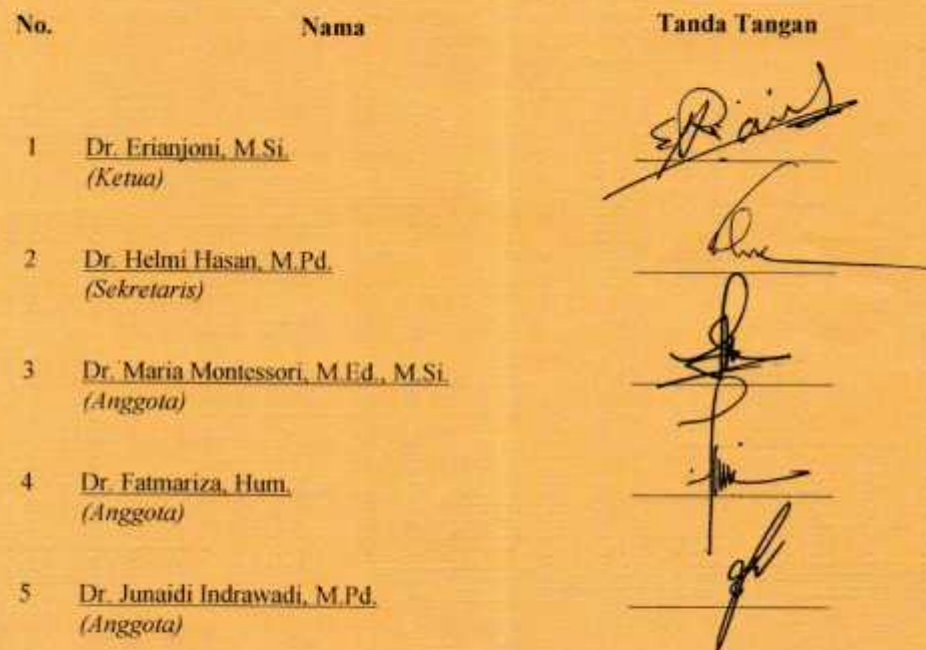 No. Nama Tanda Tangan
1 Dr. Erianjoni, M.Si.
(Ketua)
2 Dr. Helmi Hasan, M.Pd.
(Sekretaris)
3 Dr. Maria Montessori, M.Ed., M.Si.
(Anggota)
4 Dr. Fatmariza, Hum.
(Anggota)
5 Dr. Junaidi Indrawadi, M.Pd.
(Anggota)